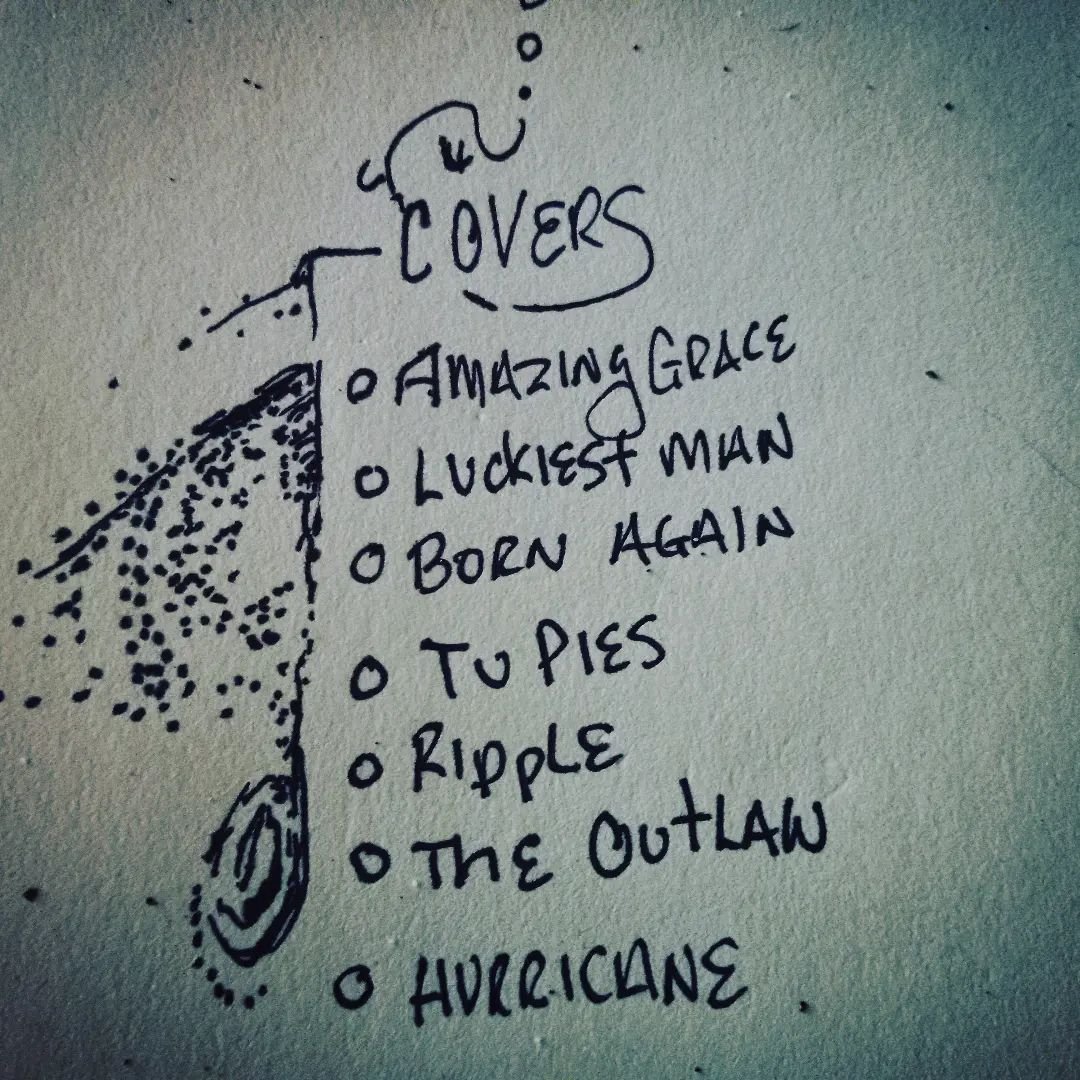 COVERS
AMAZING GRACE
LUCKIEST MAN
BORN AGAIN
TU PIES
RIPPLE
THE OUTLAW
HURRICANE